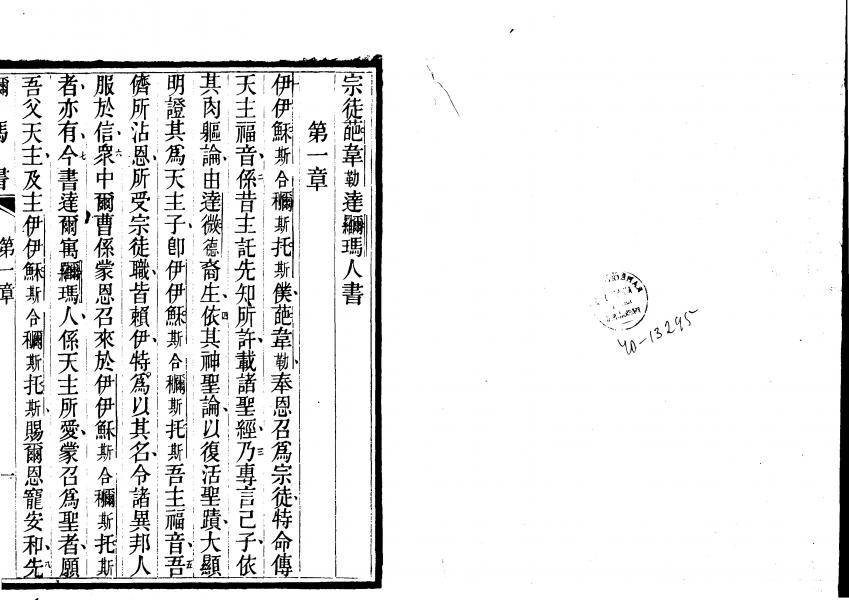 宗徒葩韋勒達𤃡瑪人書
第一章
伊伊穌斯合𥢁斯托斯僕葩韋勒奉恩召爲宗徒特命傳
天主福音二係昔主託先知所許載諸聖經三乃專言己子依
其肉軀論由達微德裔生四依其神聖論以復活聖蹟大顯
明證其爲天主子卽伊伊穌斯合𥢁斯托斯吾主福音五吾
儕所沾恩所受宗徒職皆賴伊特爲以其名令諸異邦人
服於信六衆中爾曹係蒙恩召來於伊伊穌斯合𥢁斯托斯
者亦有七今書達爾寓𤃡瑪人係天主所愛蒙召爲聖者願
吾父天主及主伊伊穌斯合𥢁斯托斯賜爾恩寵安和八先
瑪書 第一章 一
40-13295